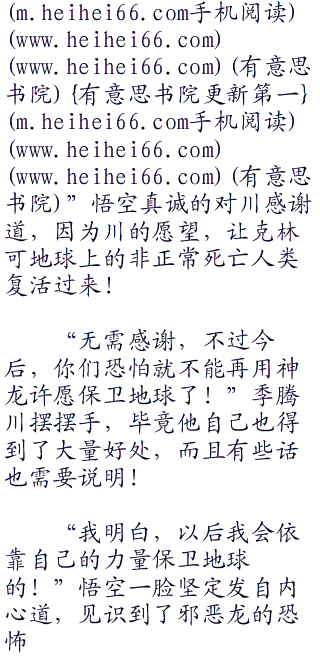 (m.heihei66.com手机阅读)
(www.heihei66.com)
(www.heihei66.com)(有意思
书院){有意思书院更新第一}
(m.heihei66.com手机阅读)
(www.heihei66.com)
(www.heihei66.com)(有意思
书院)”悟空真诚的对川感谢
道，因为川的愿望，让克林
可地球上的非正常死亡人类
复活过来！
“无需感谢，不过今
后，你们恐怕就不能再用神
龙许愿保卫地球了！”季腾
川摆摆手，毕竟他自己也得
到了大量好处，而且有些话
也需要说明！
“我明白，以后我会依
靠自己的力量保卫地球
的！”悟空一脸坚定发自内
心道，见识到了邪恶龙的恐
怖